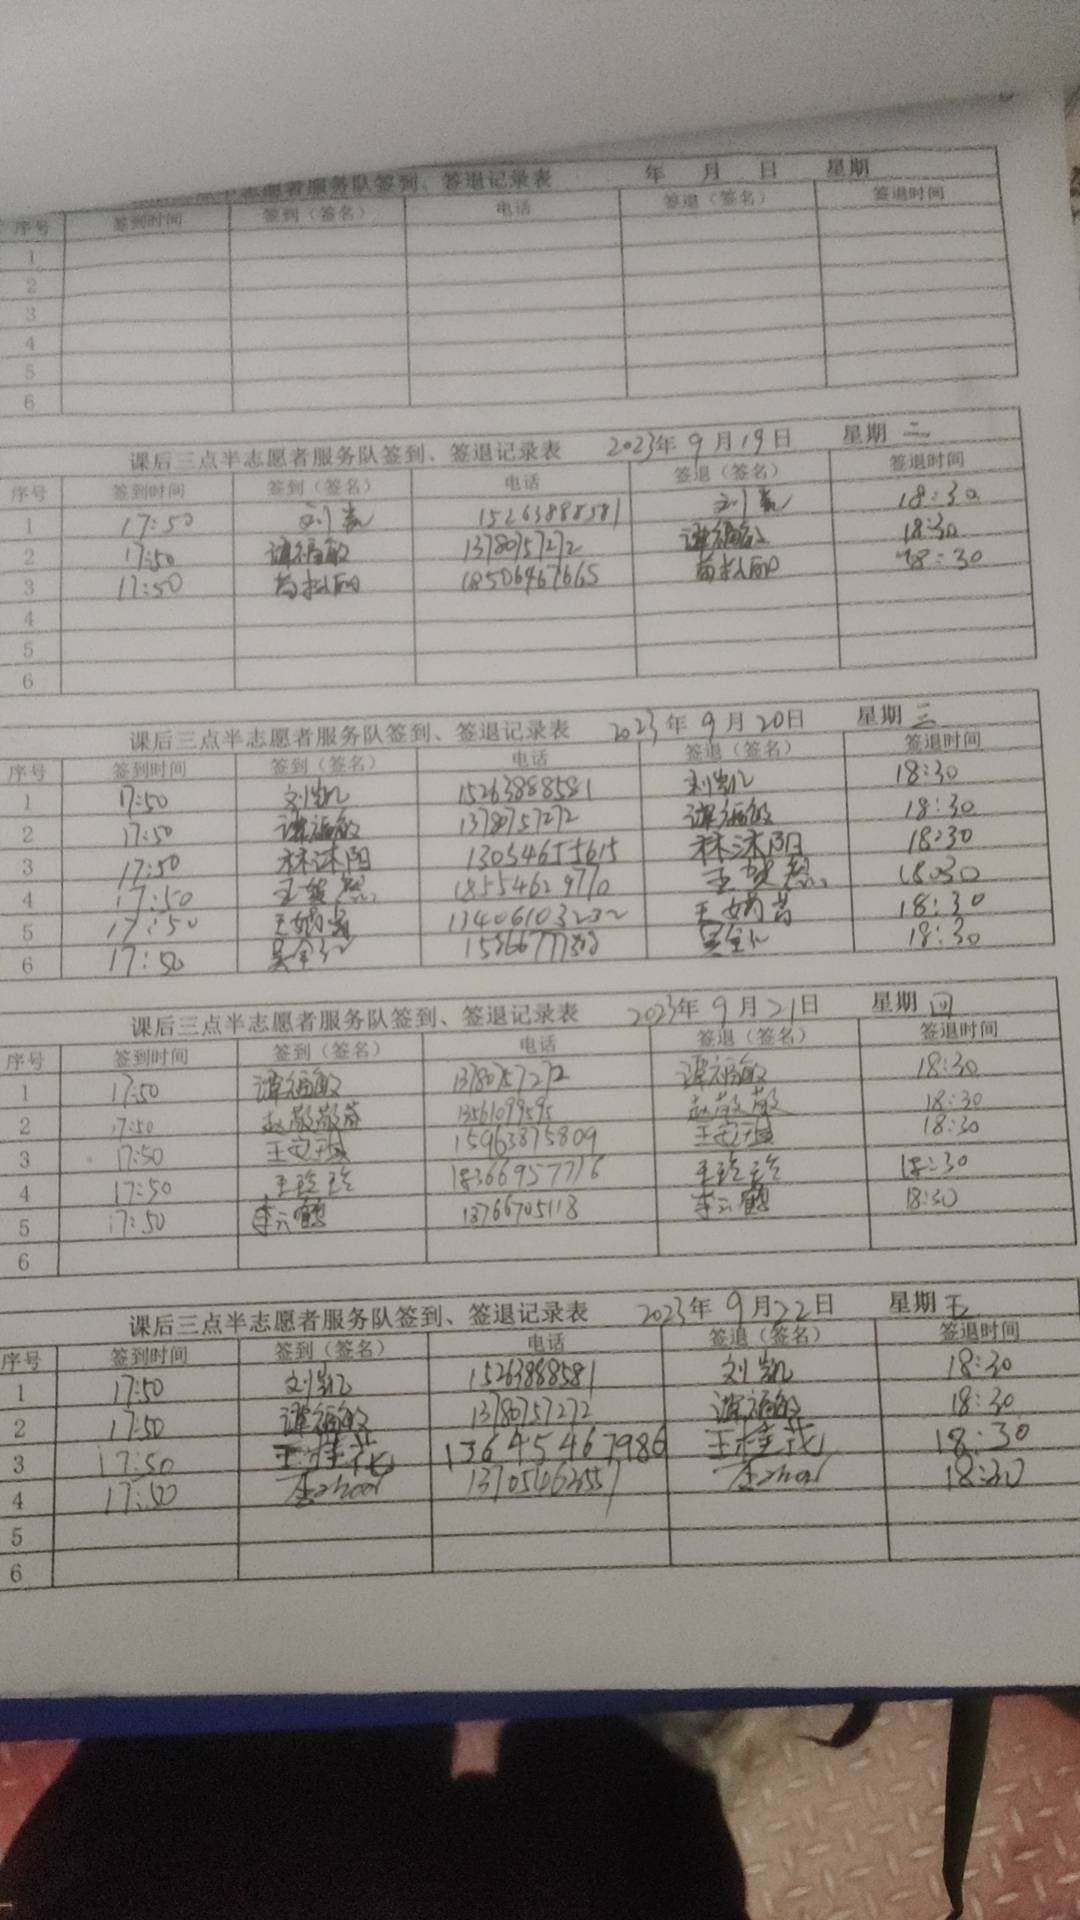 志愿者服务队签到、签退记录表 年 月 日 星期
序号 签到时间 签到（签名） 电话 签退（签名） 签退时间
1
2
3
4
5
6
课后三点半志愿者服务队签到、签退记录表 2023年 9月19日 星期 二
序号 签到时间 签到（签名） 电话 签退（签名） 签退时间
1 17:50 15263888581 18:30
2 17:50 谭福敏 13780757272 谭福敏 18:30
3 17:50 18506467665 18:30
4
5
6
课后三点半志愿者服务队签到、签退记录表 2023年 9月20日 星期 三
序号 签到时间 签到（签名） 电话 签退（签名） 签退时间
1 17:50 刘凯 15263888581 刘凯 18:30
2 17:50 谭福敏 13780757272 谭福敏 18:30
3 17:50 林沐阳 13054655615 林沐阳 18:30
4 17:50 18554629770 18:30
5 17:50 13406103232 18:30
6 17:50 18:30
课后三点半志愿者服务队签到、签退记录表 2023年 9月21日 星期 四
序号 签到时间 签到（签名） 电话 签退（签名） 签退时间
1 17:50 谭福敏 13780757272 谭福敏 18:30
2 17:50 13561099595 18:30
3 17:50 15963875809 18:30
4 17:50 王玲玲 18366957716 王玲玲 18:30
5 17:50 李云鹤 13766705118 李云鹤 18:30
6
课后三点半志愿者服务队签到、签退记录表 2023年 9月22日 星期 五
序号 签到时间 签到（签名） 电话 签退（签名） 签退时间
1 17:50 刘凯 15263888581 刘凯 18:30
2 17:50 谭福敏 13780757272 谭福敏 18:30
3 17:50 王桂花 13645467986 王桂花 18:30
4 17:50 18:30
5
6